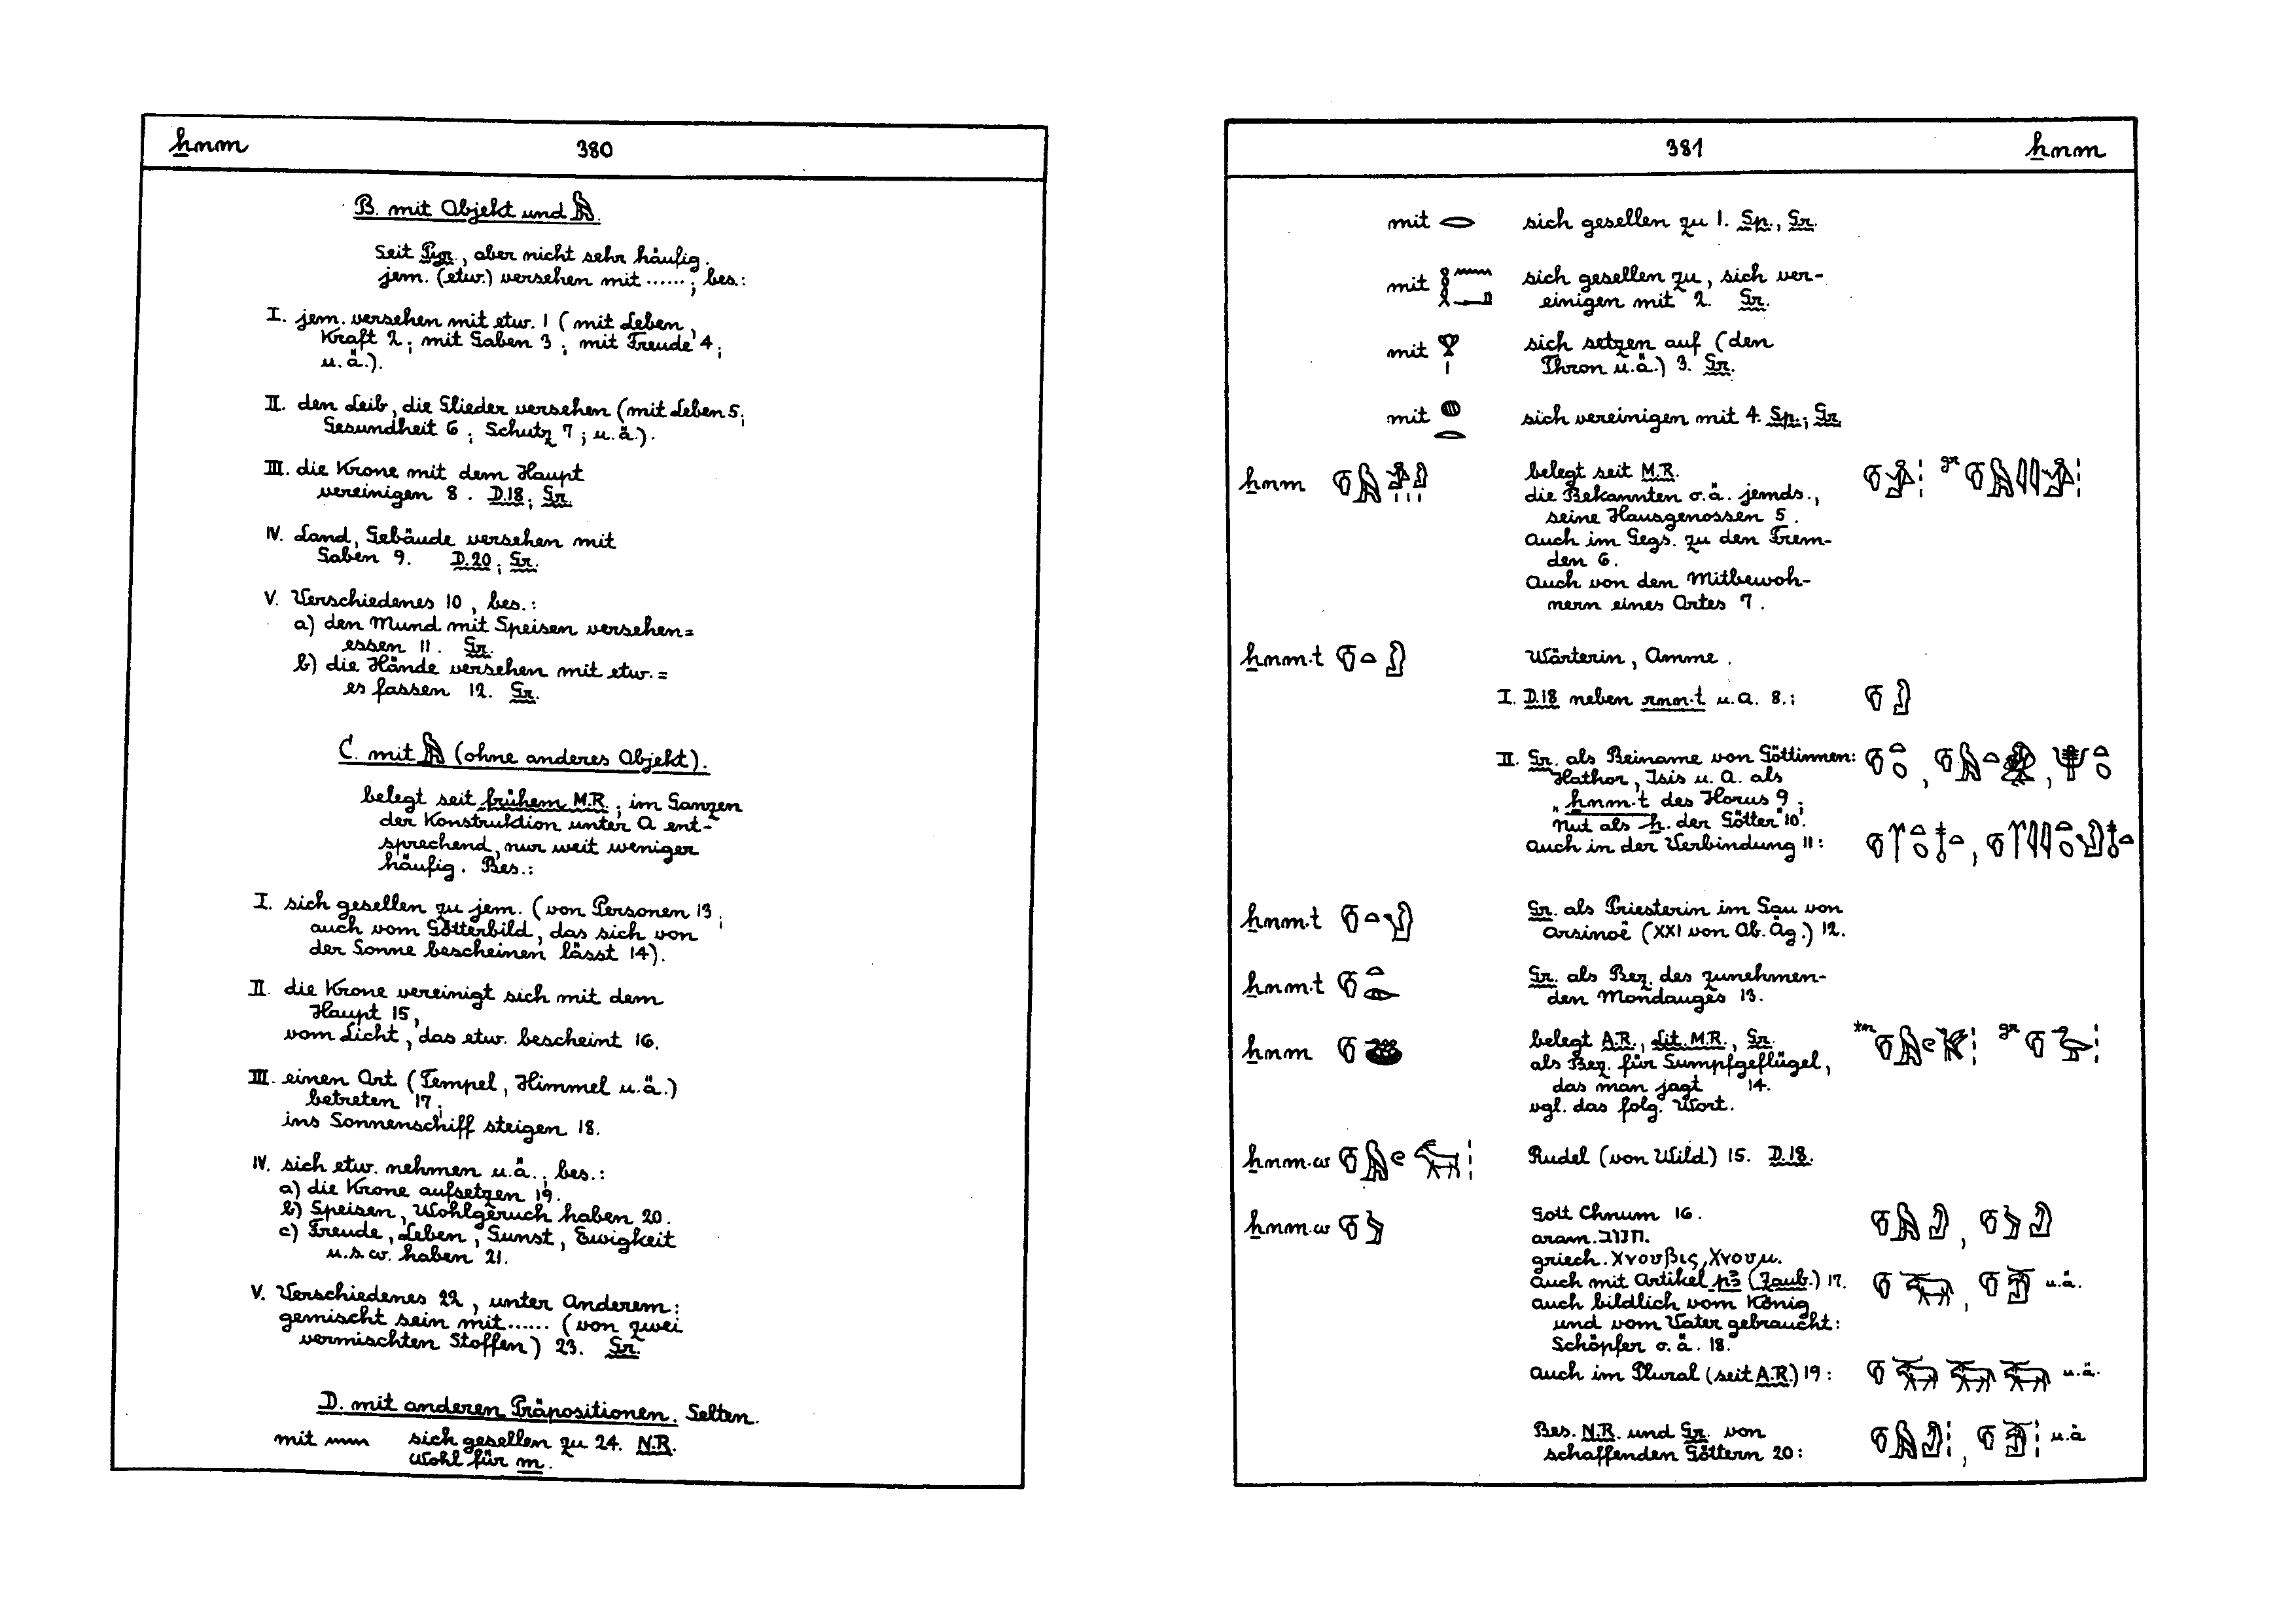 ẖnm 380
B. mit Objekt und 𓅓.
Seit Pyr., aber nicht sehr häufig.
jem. (etw.) versehen mit ......; bes.:
I. jem. versehen mit etw. 1 (mit Leben,
Kraft 2; mit Gaben 3; mit Freude 4;
u.ä.).
II. den Leib, die Glieder versehen (mit Leben 5;
Gesundheit 6; Schutz 7; u.ä.).
III. die Krone mit dem Haupt
vereinigen 8. D.18; Gr.
IV. Land, Gebäude versehen mit
Gaben 9. D.20; Gr.
V. Verschiedenes 10, bes.:
a) den Mund mit Speisen versehen=
essen 11. Gr.
b) die Hände versehen mit etw. =
es fassen 12. Gr.
C. mit 𓅓 (ohne anderes Objekt).
belegt seit frühem M.R.; im Ganzen
der Konstruktion unter A ent-
sprechend, nur weit weniger
häufig. Bes.:
I. sich gesellen zu jem. (von Personen 13;
auch vom Götterbild, das sich von
der Sonne bescheinen lässt 14).
II. die Krone vereinigt sich mit dem
Haupt 15,
vom Licht, das etw. bescheint 16.
III. einen Ort (Tempel, Himmel u.ä.)
betreten 17;
ins Sonnenschiff steigen 18.
IV. sich etw. nehmen u.ä.; bes.:
a) die Krone aufsetzen 19.
b) Speisen, Wohlgeruch haben 20.
c) Freude, Leben, Gunst, Ewigkeit
u.s.w. haben 21.
V. Verschiedenes 22, unter Anderem:
gemischt sein mit ...... (von zwei
vermischten Stoffen) 23. Gr.
D. mit anderen Präpositionen. Selten.
mit 𓈖 sich gesellen zu 24. N.R.
Wohl für m.
381 ẖnm
mit 𓂋 sich gesellen zu 1. Sp., Gr.
mit 𓎛𓈖𓂝 sich gesellen zu, sich ver-
einigen mit 2. Gr.
mit 𓁷𓏤 sich setzen auf (den
Thron u.ä.) 3. Gr.
mit 𓐍𓂋 sich vereinigen mit 4. Sp.; Gr.
ẖnm belegt seit M.R.
die Bekannten o.ä. jemds.,
seine Hausgenossen 5.
Auch im Gegs. zu den Frem-
den 6.
Auch von den Mitbewoh-
nern eines Ortes 7.
ẖnm.t Wärterin, Amme.
I. D.18 neben rnn.t u.A. 8.:
II. Gr. als Beiname von Göttinnen:
Hathor, Isis u. A. als
„ẖnm.t des Horus 9;
Nut als ẖ. der Götter" 10.
auch in der Verbindung 11:
ẖnm.t Gr. als Priesterin im Gau von
Arsinoë (XXI von Ob. Äg.) 12.
ẖnm.t Gr. als Bez. des zunehmen-
den Mondauges 13.
ẖnm belegt A.R., Lit. M.R., Gr.
als Bez. für Sumpfgeflügel,
das man jagt 14.
vgl. das folg. Wort.
ẖnm.w Rudel (von Wild) 15. D.18.
ẖnm.w Gott Chnum 16.
aram. חנוב.
griech. Χνουβις, Χνουμ.
auch mit Artikel pꜣ (Zaub.) 17. u.ä.
auch bildlich vom König
und vom Vater gebraucht:
Schöpfer o.ä. 18.
auch im Plural (seit A.R.) 19: u.ä.
Bes. N.R. und Gr. von u.ä
schaffenden Göttern 20: